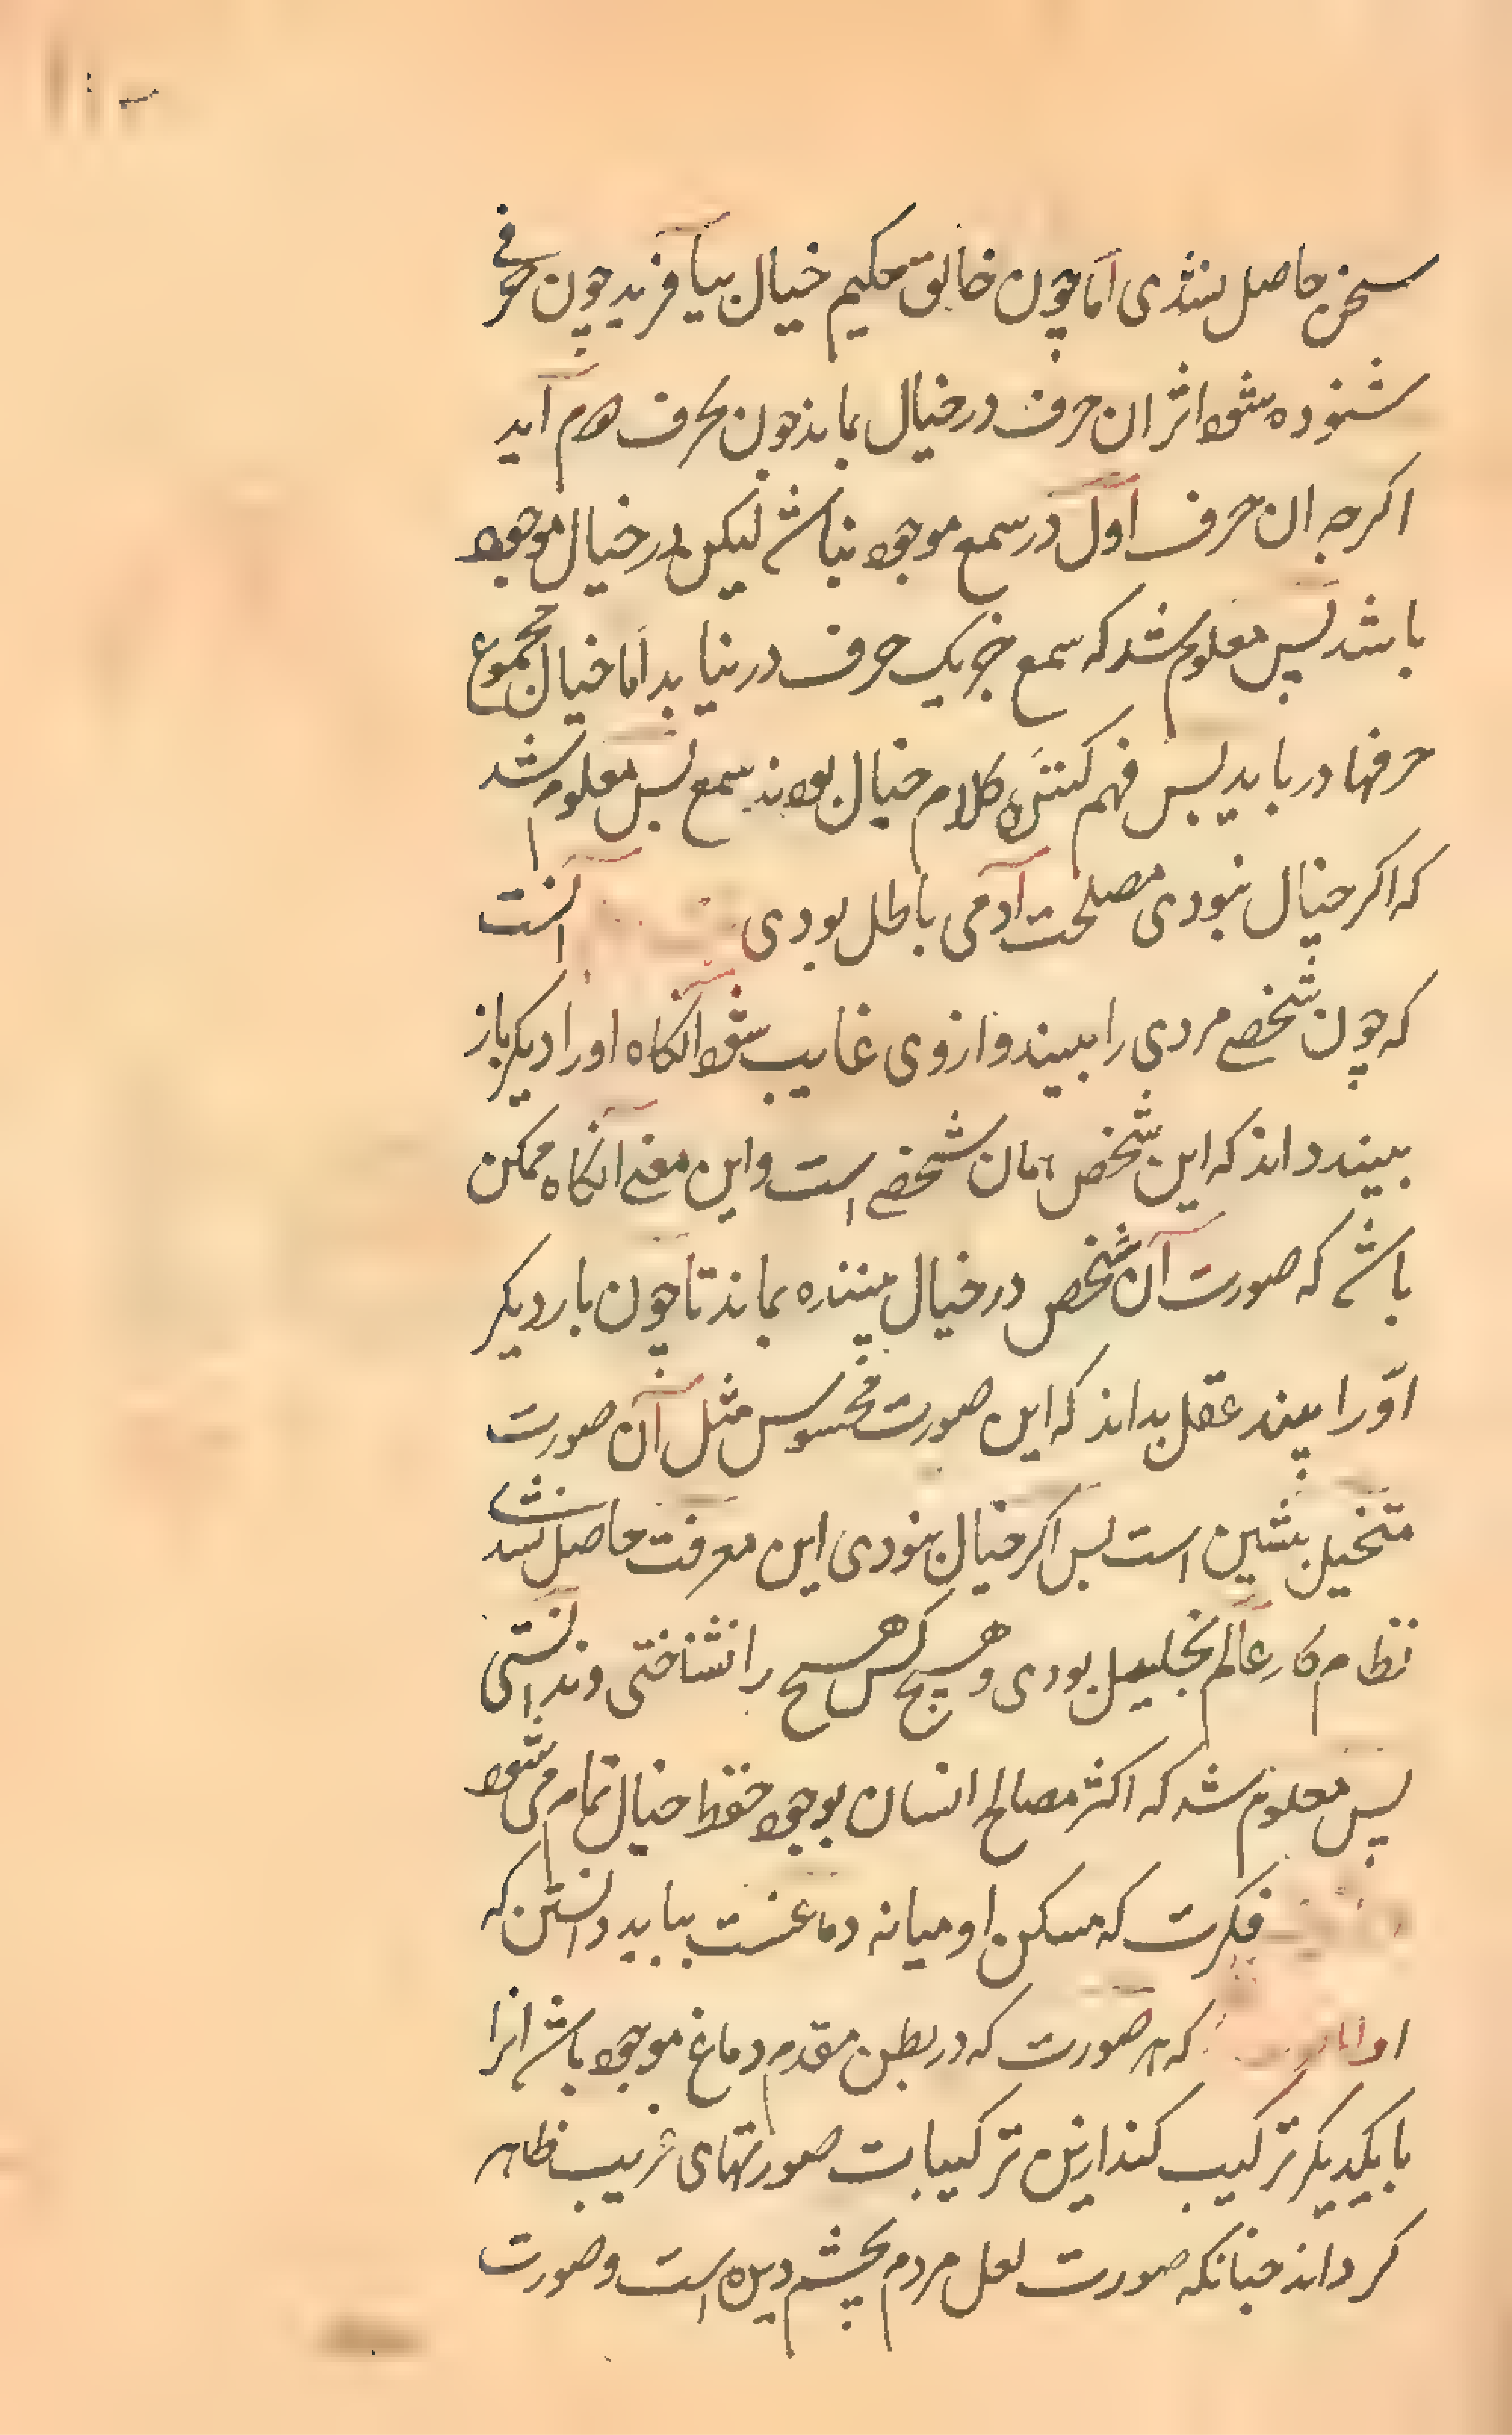 سخن حاصل نشدی اما چون خالق حکیم خیال بیافرید چون حرفی
شنوده شود اثر ان حرف در خیال بماند چون حرف دوم آید
اکرچه ان حرف اول در سمع موجود نباشد لیکن در خیال موجود
باشد پس معلوم شد که سمع جز یک حرف در نیابد اما خیال مجموع
حرفها دریابد پس فهم کننده کلام خیال بود نه سمع پس معلوم شد
که اکر خیال نبودی مصلحت آدمی باطل بودی انست
که چون شخصی مردی را ببیند و از وی غایب شود آنکاه او را دیکر باز
ببیند داند که این شخص همان شخصی است و این معنی آنکاه ممکن
باشد که صورت آن شخص در خیال بیننده بماند تا چون بار دیکر
او را بیند عقل بداند که این صورت محسوس مثل آن صورت
متخیل پیشین است پس اکر خیال نبودی این معرفت حاصل نشدی
نظام کار عالم بودی و هیچ کس هیچ را نشناختی و ندانستی
پس معلوم شد که اکثر مصالح انسان بوجود حفظ خیال تمام می شود
فکرت که مسکن او میانه دماغست بباید دانستن که
که هر صورت که در بطن مقدم دماغ موجود باشد انرا
با یکدیکر ترکیب کند از این ترکیبات صورتهای غریب ظاهر
کرداند چنانکه صورت لعل مردم بچشم دیده است و صورت